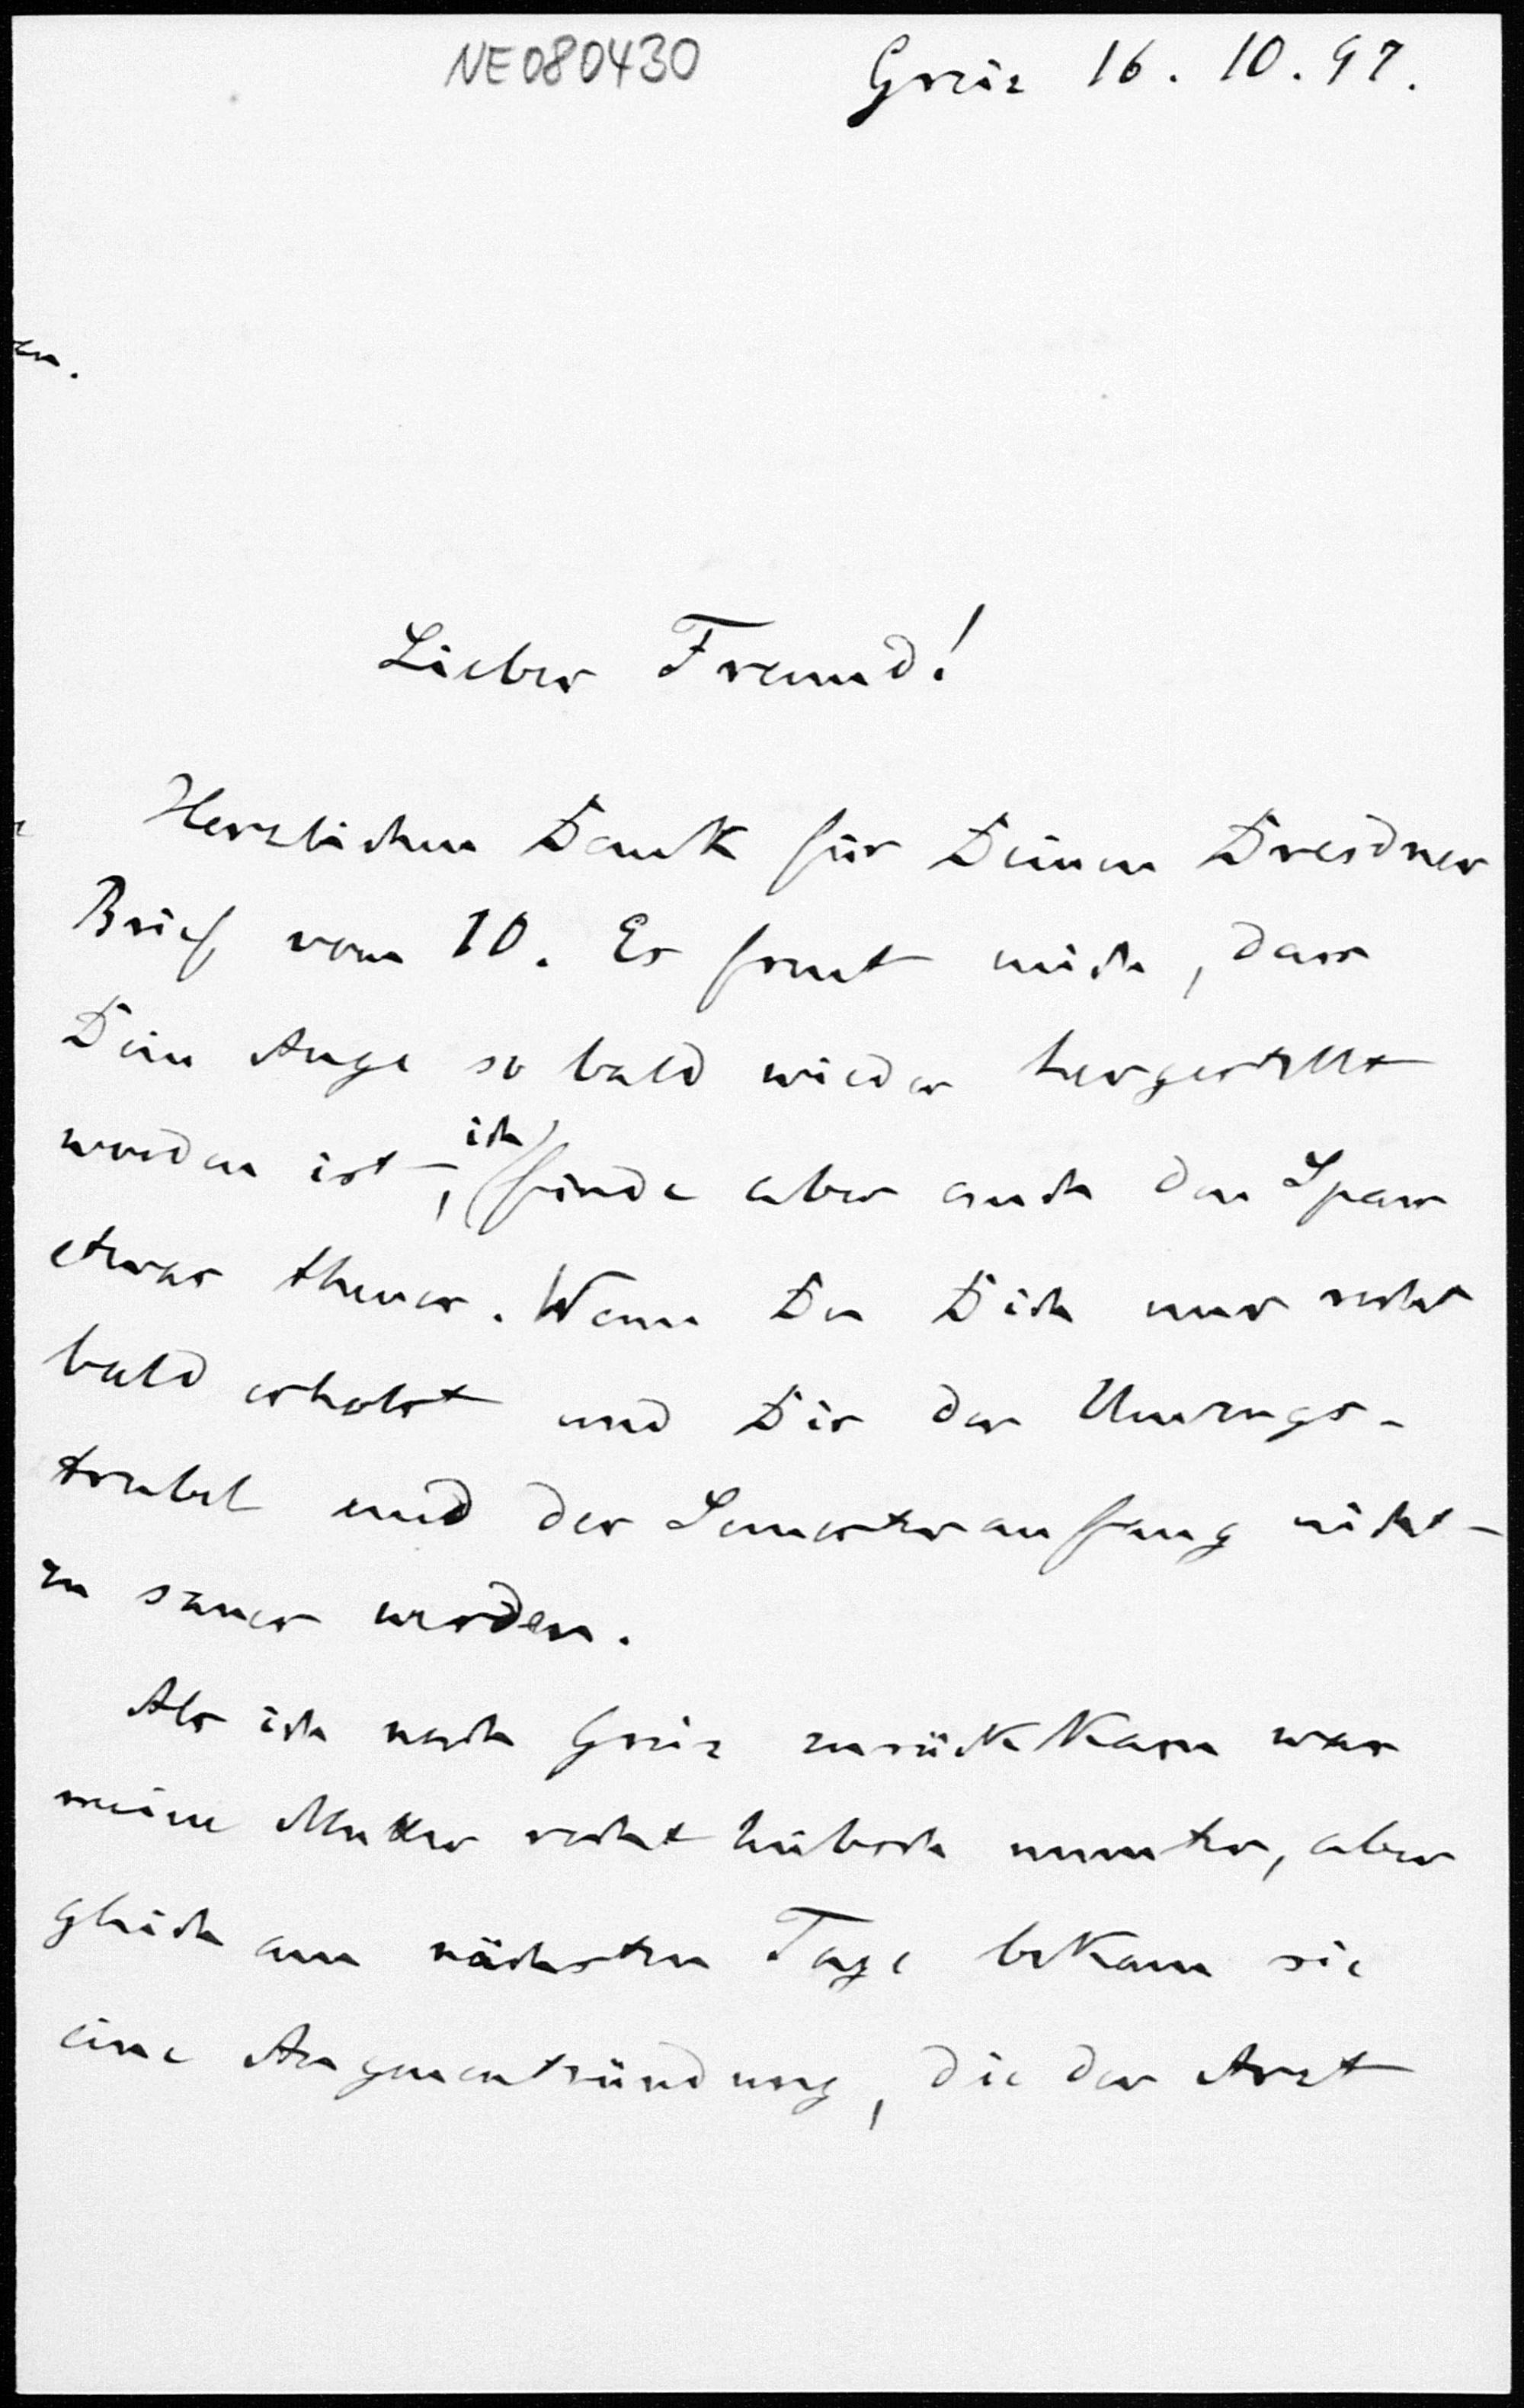 NE080430
Greiz 16. 10. 97.
en.
Lieber Freund!
Herzlichen Dank für Deinen Dresdner
Brief vom 10. Es freut mich, dass
Dein Auge so bald wieder hergestellt
worden ist, ich finde aber auch den Spass
etwas theuer. Wenn Du Dich nur recht
bald erholst und Dir der Umzugs-
trubel und der Semesteranfang nicht
zu sauer werden.
Als ich nach Greiz zurückkam war
meine Mutter recht hübsch munter, aber
gleich am nächsten Tage bekam sie
eine Augenentzündung, die der Arzt